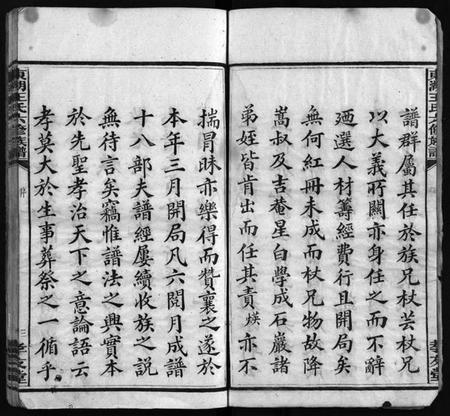 東湖王氏六修族譜
譜群屬其任於族兄杖芸杖兄
以大義所關亦身任之而不辭
廼選人材籌經費行且開局矣
無何紅冊未成而杖兄物故降
嵩叔及吉菴星白學成石巖諸
弟姪皆肯出而任其責煐亦不
孝友堂
揣冒昧亦樂得而贊襄之遂於
本年三月開局凡六閱月成譜
十八部夫譜經屢續收族之說
無待言矣竊惟譜法之興實本
於先聖孝治天下之意論語云
孝莫大於生事葬祭之一循乎
東湖王氏六修族譜
三
孝友堂